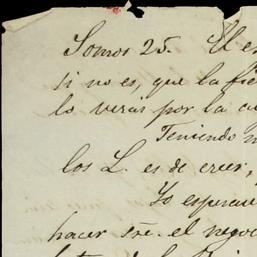 Somos 25. El es
si no es, que la fie
lo veras por la ca
Teniendo
los L. es de creer,
Yo esperan
hacer sre. el nego